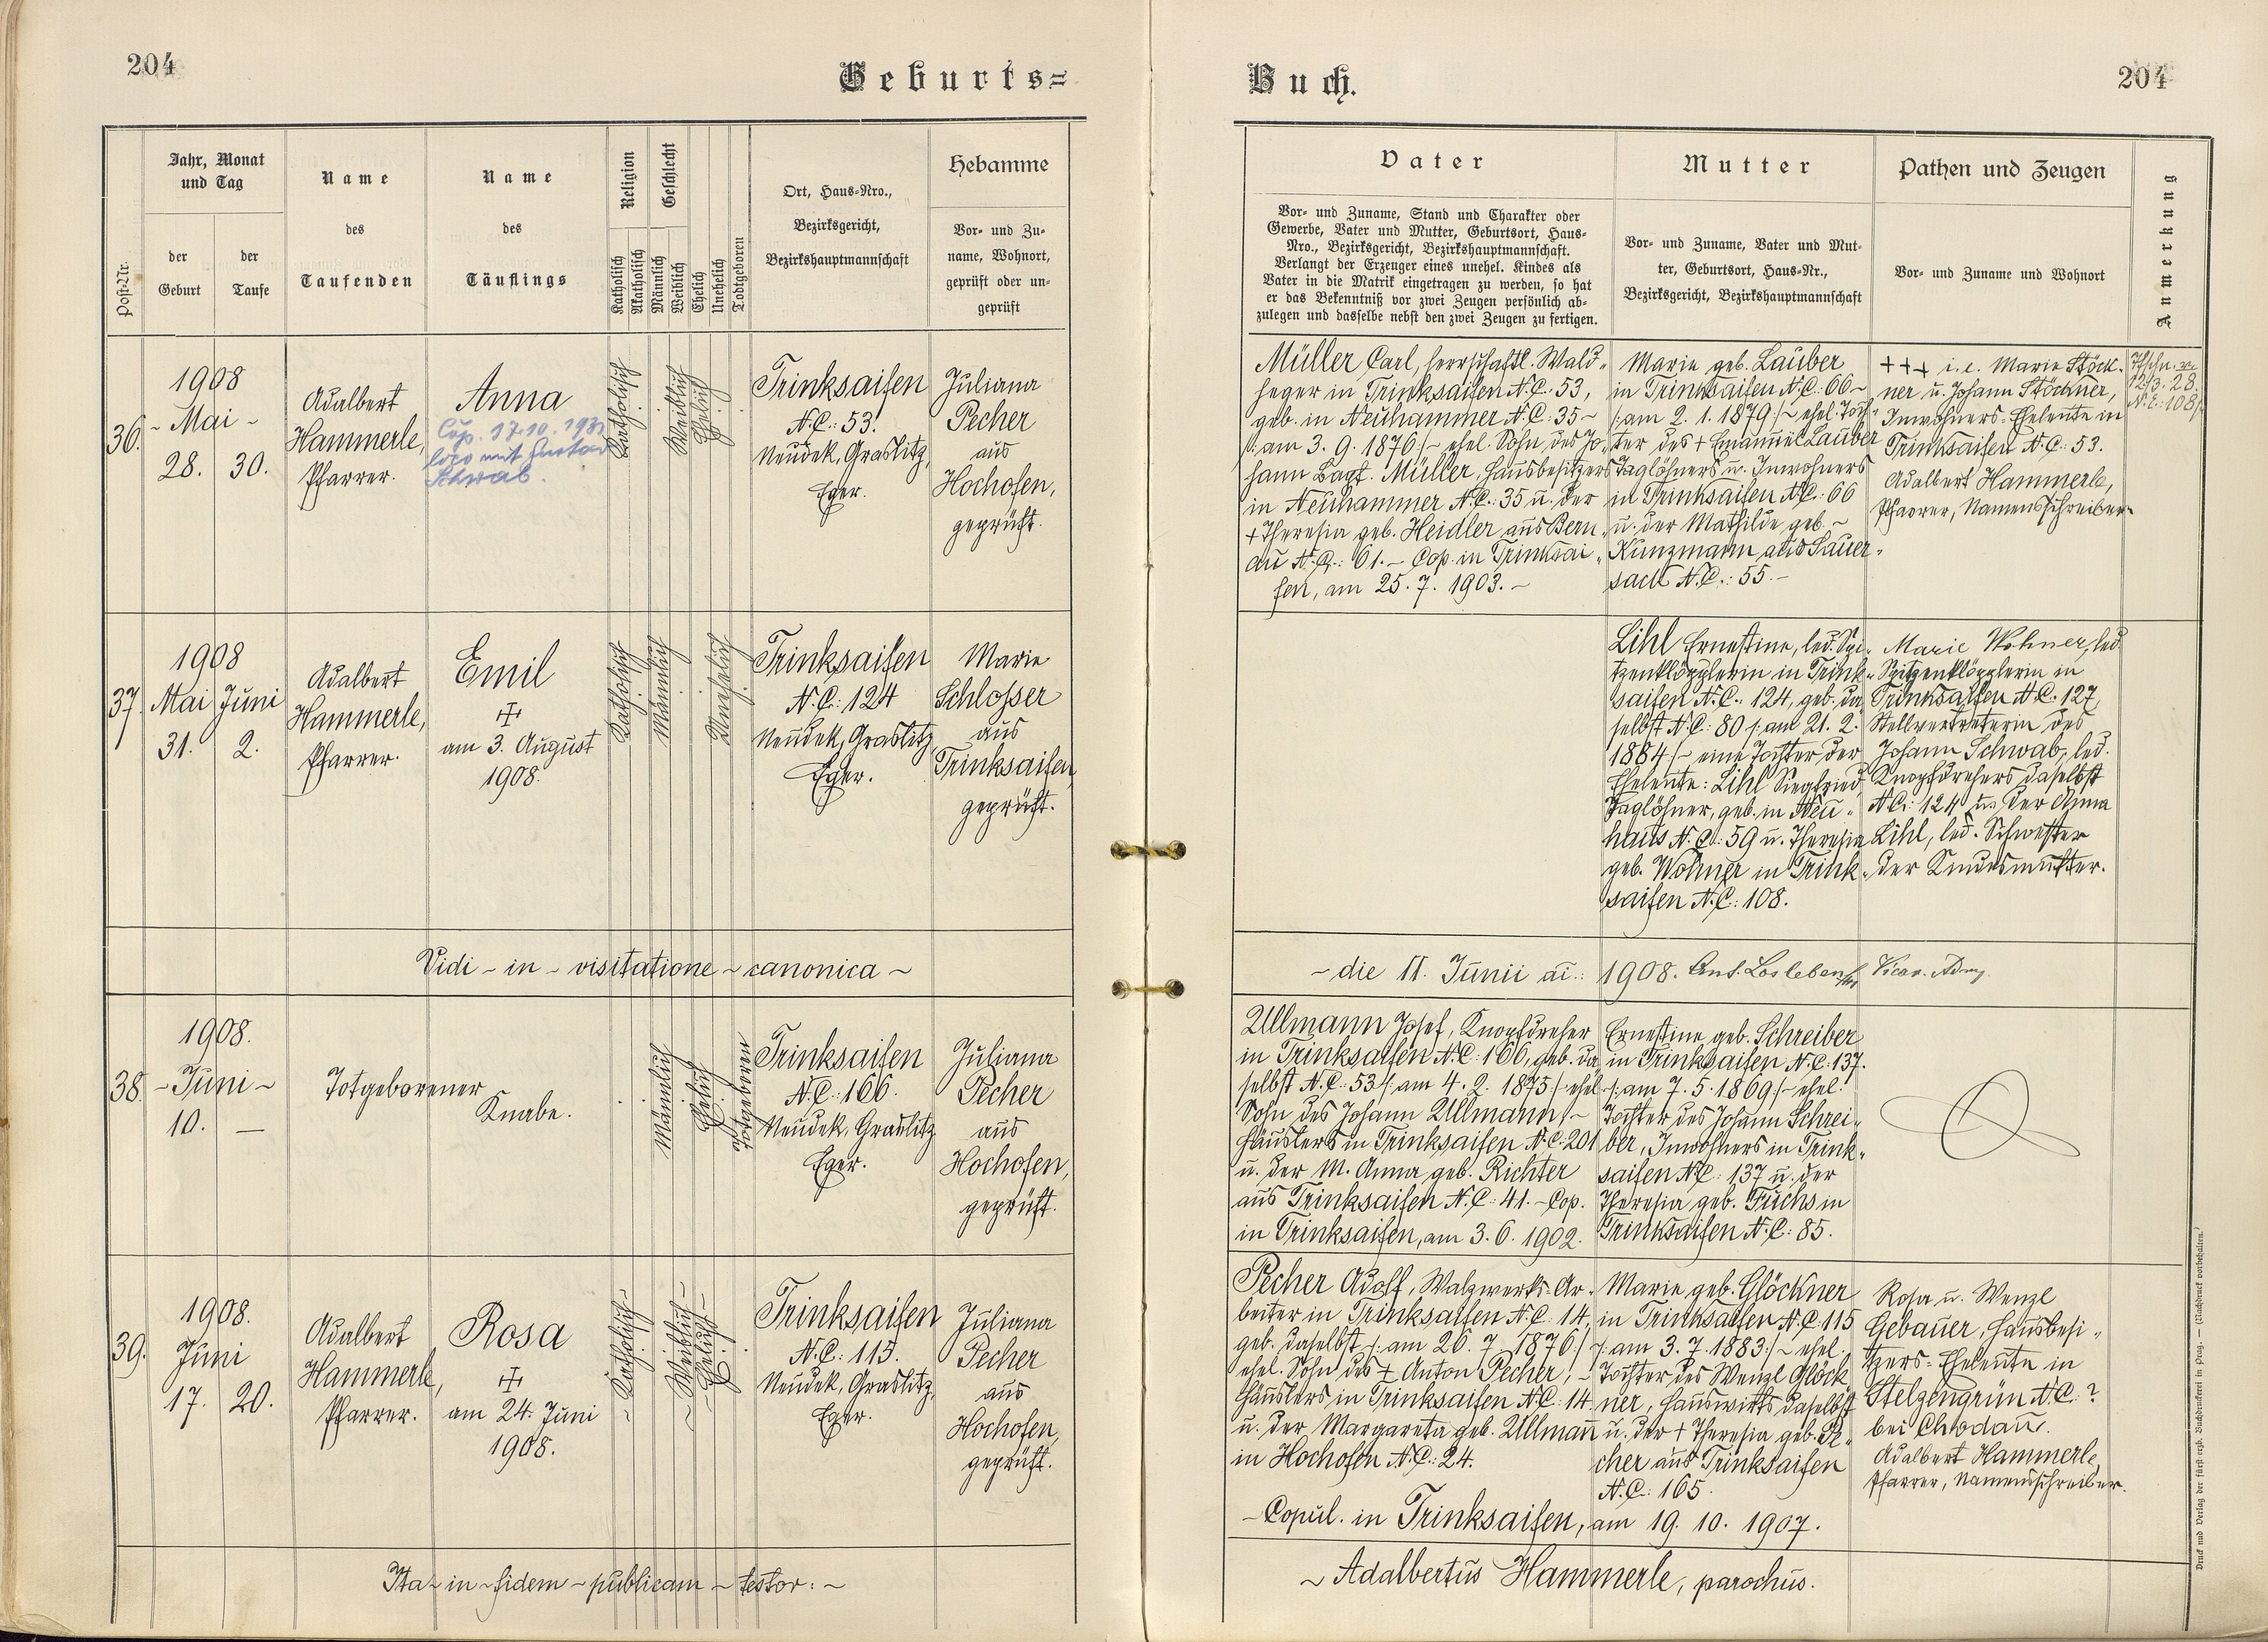 204
Geburts=
Jahr, Monat
und Tag
Name
Name
Religion
Geschlecht
Hebamme
Ort, Haus=Nro.,
Bezirksgericht,
Bezirkshauptmannschaft
Post-Nr.
der
Geburt
der
Taufe
des
Taufenden
des
Täuflings
Katholisch
Akatholisch
Männlich
Weiblich
Ehelich
Unehelich
Todtgeboren
Vor= und Zu=
name, Wohnort,
geprüft oder un=
geprüft
36.
1908
- Mai -
28. 30.
Adalbert
Hammerle,
Pfarrer.
Anna
Cop. 17.10.
loco mit Gustav
Schwab.
Katholisch
Weiblich
Ehelich
Trinksaifen
N.C.: 53.
Neudek, Graslitz,
Eger.
Juliana
Pecher
aus
Hochofen,
geprüft.
37.
1908
Mai Juni
31. 2.
Adalbert
Hammerle,
Pfarrer.
Emil
am 3. August
1908.
Katholisch
Männlich
Unehelich
Trinksaifen
N.C.: 124
Neudek, Graslitz
Eger.
Marie
Schlosser
aus
Trinksaifen,
geprüft.
Vidi ~ in ~ visitatione ~ canonica ~
38.
1908.
- Juni -
10. —
Totgeborener
Knabe.
Männlich
Ehelich
Totgeboren
Trinksaifen
N.C.: 166.
Neudek, Graslitz
Eger.
Juliana
Pecher
aus
Hochofen,
geprüft.
39.
1908.
Juni
17. 20.
Adalbert
Hammerle,
Pfarrer.
Rosa
am 24. Juni
1908.
Katholisch
Weiblich
Ehelich
Trinksaifen
N.C.: 115.
Neudek, Graslitz,
Eger.
Juliana
Pecher
aus
Hochofen,
geprüft.
Ita ~ in ~ fidem ~ publicam ~ testor: ~
Buch.
204
Vater
Vor= und Zuname, Stand und Charakter oder
Gewerbe, Vater und Mutter, Geburtsort, Haus=
Nro., Bezirksgericht, Bezirkshauptmannschaft.
Verlangt der Erzeuger eines unehel. Kindes als
Vater in die Matrik eingetragen zu werden, so hat
er das Bekenntniß vor zwei Zeugen persönlich ab=
zulegen und dasselbe nebst den zwei Zeugen zu fertigen.
Mutter
Vor= und Zuname, Vater und Mut=
ter, Geburtsort, Haus=Nr.,
Bezirksgericht, Bezirkshauptmannschaft
Pathen und Zeugen
Vor= und Zuname und Wohnort
Anmerkung
Müller Carl, herrschaftl. Wald-
heger in Trinksaifen N.C.: 53,
geb. in Neuhammer N.C.: 35 ~
/: am 3. 9. 1876 :/ ~ ehel. Sohn des Jo-
hann Bapt. Müller, Hausbesitzers
in Neuhammer N.C.: 35 u. der
+ Theresia geb. Heidler aus Bern-
au N.C.: 61. ~ Cop. in Trinksai-
fen, am 25. 7. 1903. ~
Marie geb. Lauber
in Trinksaifen N.C.: 66 ~
/: am 2. 1. 1879 :/ ~ ehel. Toch-
ter des + Emanuel Lauber
Taglöhners u. Inwohners
in Trinksaifen N.C.: 66
u. der Mathilde geb. ~
Kunzmann aus Sauer-
sack N.C.: 55. ~
+++ i.e. Marie Stöck-
ner u. Johann Stöckner,
Inwohners-Eheleute in
Trinksaifen N.C.: 53.
Adalbert Hammerle,
Pfarrer, Namensschreiber.
12/3. 28.
N.E.: 108/
Lihl Ernestine, led. Spi-
tzenklöpplerin in Trink-
saifen N.C.: 124, geb. da
selbst N.C.: 80 /: am 21. 2.
1884 :/ ~ eine Tochter der
Eheleute: Lihl Siegfried,
Taglöhner, geb. in Neu-
haus N.C.: 59 u. Theresia
geb. Wohner in Trink-
saifen N.C.: 108.
Marie Wohner, led.
Spitzenklöpplerin in
Trinksaifen N.C.: 127,
Stellvertreterin des
Johann Schwab, led.
Knopfdrehers daselbst
N.C.: 124 u. der Anna
Lihl, led. Schwester
der Kindsmutter.
~ die 11. Junii ai.: 1908. Ant. Losleben Vicar. Adm.
Ullmann Josef, Knopfdreher
in Trinksaifen N.C.: 166, geb. da
selbst N.C.: 53 /: am 4. 2. 1875 :/ ehel.
Sohn des Johann Ullmann, ~
Häuslers in Trinksaifen N.C.: 201
u. der M. Anna geb. Richter
aus Trinksaifen N.C.: 41. ~ Cop.
in Trinksaifen, am 3. 6. 1902.
Ernestine geb. Schreiber
in Trinksaifen N.C.: 137.
/: am 7. 5. 1869 :/ ~ ehel.
Tochter des Johann Schrei-
ber, Inwohners in Trink-
saifen N.C.: 137 u. der
Theresia geb. Fuchs in
Trinksaifen N.C.: 85.
Pecher Adolf, Walzwerks-Ar-
beiter in Trinksaifen N.C.: 14,
geb. daselbst /: am 26. 7. 1876 :/
ehel. Sohn des + Anton Pecher, ~
Häuslers in Trinksaifen N.C.: 14
u. der Margareta geb. Ullmann
in Hochofen N.C.: 24.
Marie geb. Glöckner
in Trinksaifen N.C.: 115
/: am 3. 7. 1883 :/ ~ ehel.
Tochter des Wenzl Glöck
ner, Hauswirts daselbst
u. der + Theresia geb. Pe-
cher aus Trinksaifen
N.C.: 165.
Rosa u. Wenzl
Gebauer, Hausbesi-
tzers-Eheleute in
Stelzengrün N.C.: ?
bei Chodau.
Adalbert Hammerle,
Pfarrer, Namensschreiber.
~ Copul. in Trinksaifen, am 19. 10. 1907.
~ Adalbertus Hammerle, parochus.
Druck und Verlag der fürst-erzb. Buchdruckerei in Prag. — (Nachdruck vorbehalten.)